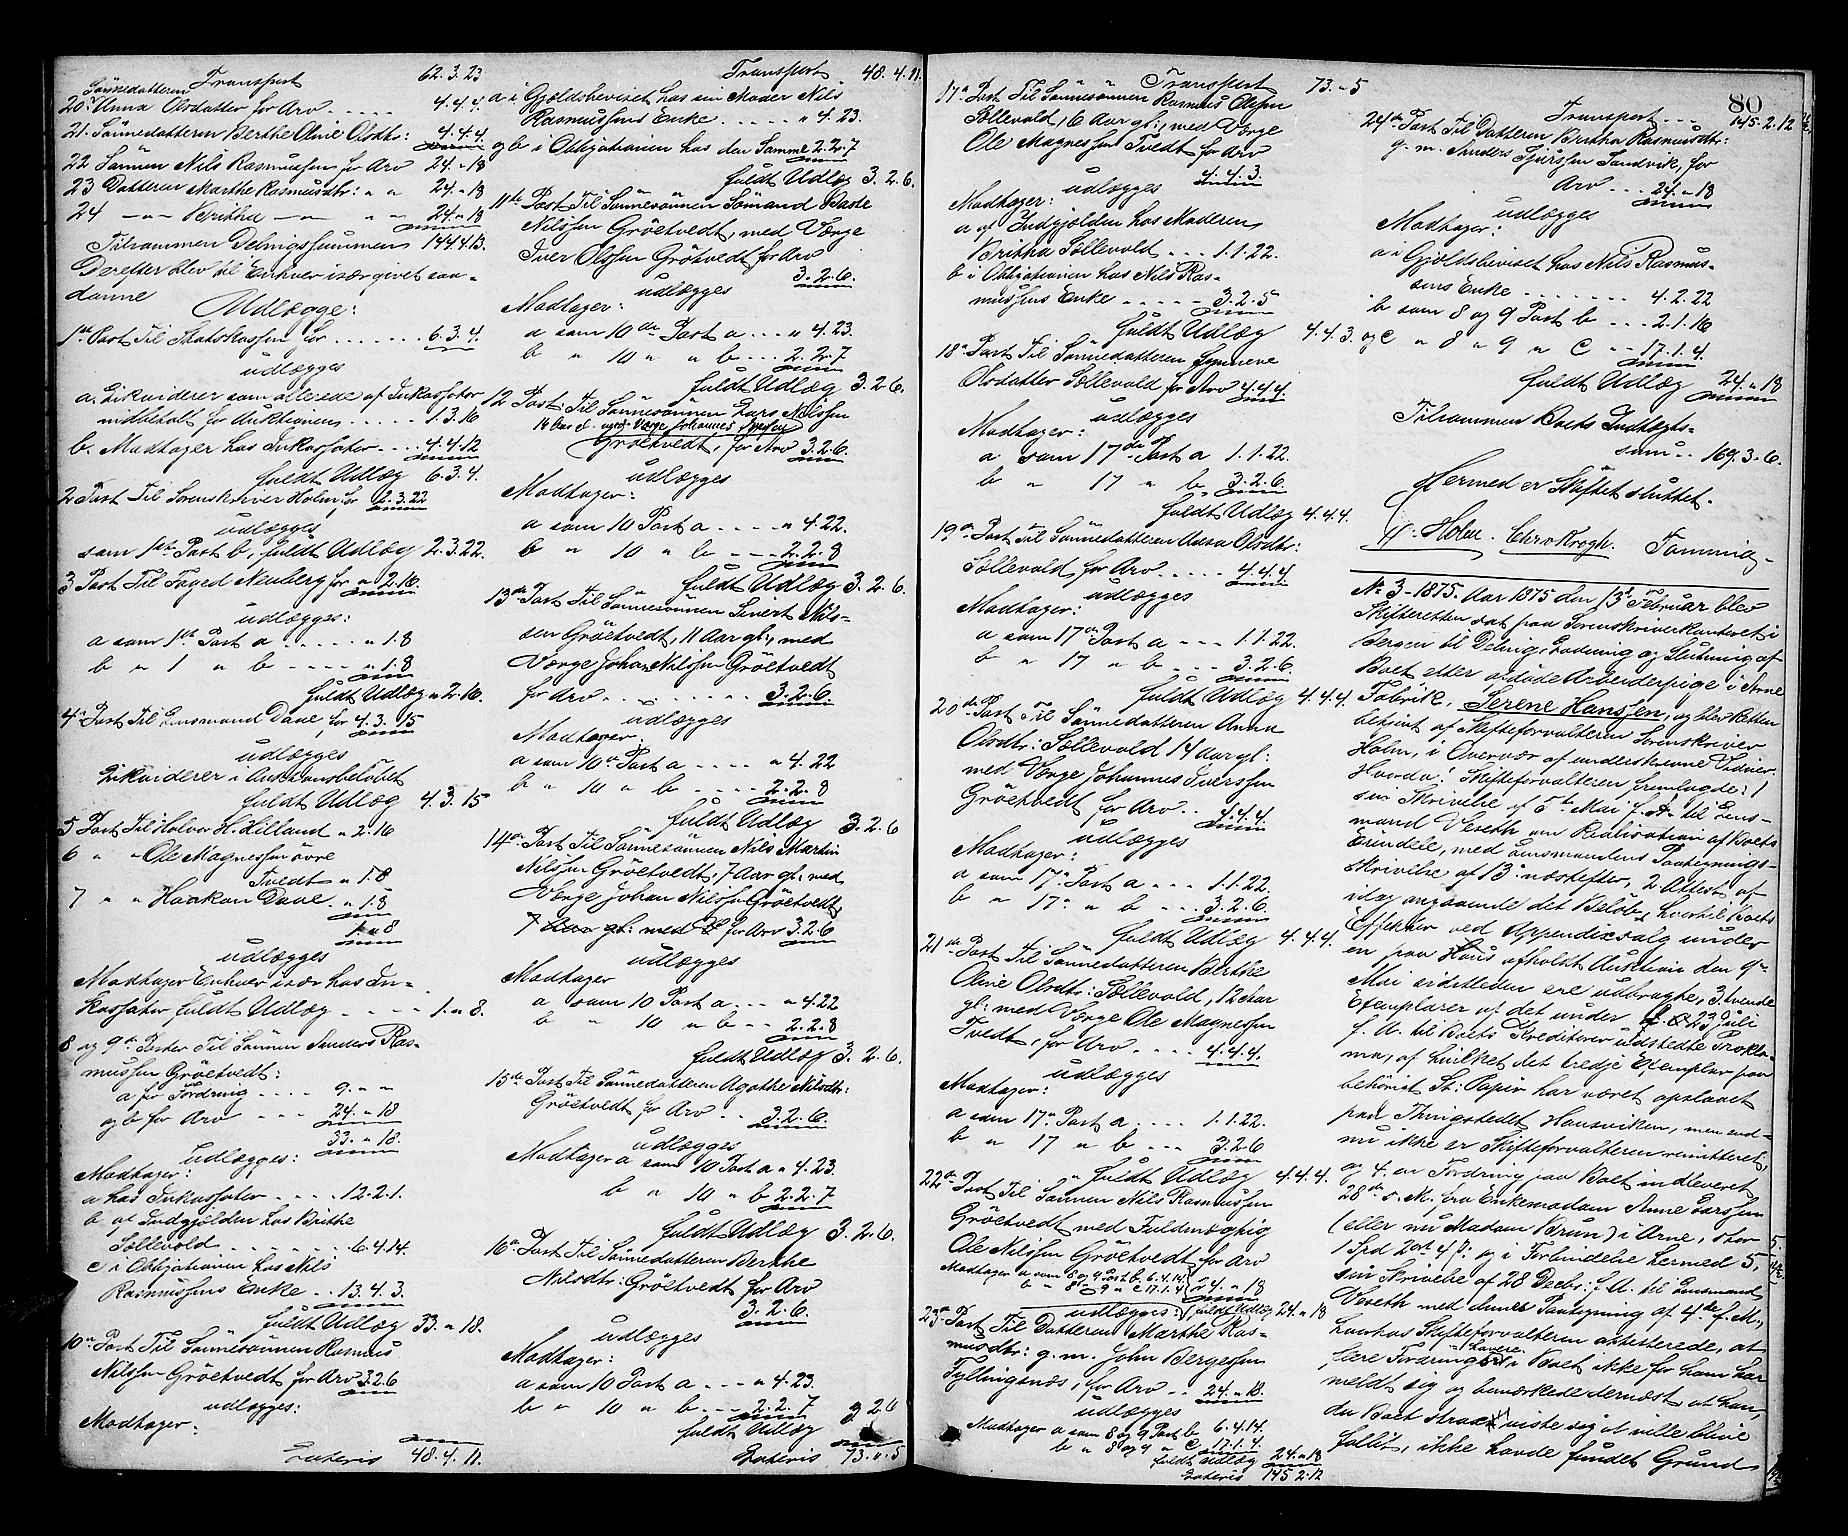 Transport 62.3.23
Sönnedatteren
20. Anna Olsdatter for Arv .... 4.4.4.
21. Sönnedatteren Berthe Oline Olsdtr: 4.4.4
22 Sönnen Nils Rasmussen for Arv 24.〃18
23 Datteren Marthe Rasmusdtr: 〃 〃 24.〃18
24 —〃— Britha —〃— 〃 〃 24.〃18
Tilsammen Delingssummen 144.4.13.
Derefter blev til Enhver især givet saa-
danne
Udlægge:
1ste Post Til Statskassen for ...... 6.3.4.
udlægges
a. Likviderer som allerede af Inkassator
indbetalt for Auktionen ..... 1.3.16
b. Modtager hos Inkassator ... 4.4.12
fuldt Udlæg 6.3.4.
2 Post Til Sorenskriver Holm, for 2.3.22
udlægges
som 1ste Post b, fuldt Udlæg 2.3.22.
3 Post Til Foged Neuberg for 〃 2.16.
udlægges:
a som 1ste Post a .... 〃 1.8
b 〃 1 〃 b ---- 〃 1.8
fuldt Udlæg 〃 2.16.
4de Post Til Lensmand Dave, for 4.3.15
udlægges
Likviderer i Auktionsbelöbet
fuldt Udlæg 4.3.15
5 Post Til Halvor H. Lilland 〃 2.16
6 〃 〃 Ole Magnessen övre
Tvedt 〃 1.8
7 〃 〃 Haakon Dave. 〃 1.8
1.〃8
udlægges
Modtager Enhver især hos In-
kassator fuldt Udlæg .... 1.〃8.
8 og 9de Poster Til Sönnen Anders Ras-
mussen Gröetvedt:
a for Fordring .... 9.〃〃
og b for Arv ... 24.〃18
33.〃18.
udlægges:
Modtager:
a hos Inkassator .... 12.2.1.
b af Indgjælden hos Brithe
Söllevold ...... 6.4.14.
c i Obligationen hos Nils
Rasmussens Enke .. 13.4.3
fuldt Udlæg 33.〃18.
10de Post Til Sönnesönnen Rasmus
Nilssen Gröetvedt for Arv 3.2.6
udlægges:
Modtager:
Lateris 48.4.11.
Transport 48.4.11.
a i Gjeldsbeviset hos sin Moder Nils
Rasmussens Enke ..... 〃 4.23.
og b i Obligationen hos den Samme 2.2.7
fuldt Udlæg 3.2.6.
11te Post Til Sönnesönnen Sömand Baste
Nilssen Gröetvedt, med Værge
Iver Olssen Grötvedt for Arv
3.2.6.
udlægges
Modtager:
a som 10de Post a .... 〃 4.23.
b 〃 10 〃 〃 b ... 2.2.7
fuldt Udlæg 3.2.6.
12 Post: Til Sönnesönnen Lars Nilssen
Gröetvedt, for Arv 3.2.6.
udlægges
Modtager:
a som 10 Post a .... 〃 4.22.
b 〃 10 〃 b --- 2.2.8
fuldt Udlæg 3.2.6.
13de Post Til Sönnesönnen Sivert Nils-
sen Gröetvedt, 11 Aar gl:, med
Værge Johan Nilssen Gröetvedt
for Arv ......... 3.2.6.
udlægges
Modtager.
a som 10de Post a .... 〃 4.22
b 〃 10 〃 b .... 2.2.8
fuldt Udlæg 3.2.6
14de Post Til Sönnesönnen Nils Martin
Nilssen Gröetvedt, 7 Aar gl:, med
Værge Johan Nilssen Gröetvedt,
7 Aar gl: med V for Arv 3.2.6
udlægges
Modtager
a som 10 Post a ... 〃 4.22
b 〃 10 〃 b .. 2.2.8
fuldt Udlæg 3.2.6.
15de Post Til Sönnedatteren Agathe Nilsdtr:
Gröetvedt for Arv .. 3.2.6.
udlægges
Modtager a som 10 Post a 〃 4.23.
b 〃 10 〃 b 2.2.7
fuldt Udlæg 3.2.6.
16de Post Til Sönnedatteren Berthe
Nilsdtr: Gröetvedt for Arv
3.2.6.
udlægges
Modtager:
a som 10 Post a .... 〃 4.23.
b 〃 10 〃 b .... 2.2.7 3 2 6
fuldt Udlæg
Lateris 73.〃.5
Transport 73.〃5
17de Post Til Sönnesönnen Rasmus Olsen
Söllevold, 16 Aar gl:, med Værge
Ole Magnessen Tvedt for Arv
4.4.3.
udlægges
Modtager:
a af Indgjælden hos Moderen
Britha Söllevold ... 1.1.22.
b i Obligationen hos Nils Ras-
mussens Enke ..... 3.2.5
fuldt Udlæg 4.4.3.
18de Post Til Sönnedatteren
Olsdatter Söllevold for Arv 4.4.4.
udlægges
Modtager:
a som 17de Post a 1.1.22.
b 〃 17 〃 b 3.2.6.
fuldt Udlæg 4.4.4.
19de Post Til Sönnedatteren Olsdtr:
Söllevold, for Arv .... 4.4.4.
udlægges
Modtager:
a som 17de Post a ... 1.1.22.
b 〃 17 〃 b ... 3.2.6.
fuldt Udlæg 4.4.4.
20de Post Til Sönnedatteren Anna
Olsdtr: Söllevold 14 Aar gl:
med Værge Johannes Iverssen
Gröetvedt, for Arv .. 4.4.4.
udlægges
Modtager:
a som 17de Post a ... 1.1.22.
b 〃 17 〃 b ... 3.2.6.
fuldt Udlæg 4.4.4.
21de Post Til Sönnedatteren Berthe
Oline Olsdtr: Söllevold, 12 Aar
gl: med Værge Ole Magnessen
Tvedt, for Arv .... 4.4.4.
udlægges
Modtager:
a som 17de Post a .... 1.1.22.
b 〃 17 〃 b ... 3.2.6
fuldt Udlæg 4.4.4.
22de Post Til Sönnen Nils Rasmussen
Gröetvedt med Fuldmægtig
Ole Nilssen Gröetvedt for Arv
Modtager a som 8 og 9 Post b. 6.4.14
b 〃 8 og 9 〃 c 17.1.4 24.〃18
udlægges: fuldt Udlæg 24.〃18
23de Post Til Datteren Marthe Ras-
musdtr: g. m. John Bergessen
Tyllingsnæs, for Arv .. 24.〃18.
udlægges
Modtager a som 8 og 9 Post b 6.4.14.
b 〃 8 og 9 〃 c 17.1.4.
fuldt Udlæg 24.〃18
Lateris 145 2.12
80
Transport ... 145.2.12
24de Post Til Datteren Britha Rasmusdtr:
g. m. Anders Sjurssen Sandvik, for
Arv ... 24.〃18
udlægges
Modtager:
a i Gjeldsbeviset hos Nils Rasmus-
sens Enke ....... 4.2.22
b som 8 og 9 Post b ... 2.1.16
og c 〃 8 〃 9 〃 c 〃 17.1.4.
fuldt Udlæg 24.〃18
Tilsammen Boets Indtægts-
sum .. 169.3.6.
Hermed er Skiftet sluttet.
Holm. Chr Krogh.
No 3 - 1875. Aar 1875 den 13de Februar blev
Skifteretten sat paa Sorenskriverkontoret i
Bergen til Deling, Lodning og Slutning af
Boet efter afdöde Arbeiderpige i Arne
Fabrik, Serene Hanssen, og blev Retten
betjent af Skifteforvalteren Sorenskriver
Holm, i Overvær af underskrevne Vidner.
Hvorda! Skifteforvalteren fremlagde: 1
sin Skrivelse af 5te Mai f. A. til Lens-
mand Veseth om Realisation af Boets
Eiendele, med Lensmandens Paategnings-
skrivelse af 13. næstefter, 2 Attest af
idag angaaende det Belöb, hvortil Boets
Effekter ved Appendixsalg under
en paa Haus afholdt Auktion den 9de
Mai sidstleden ere udbragte, 3. tvende
Exemplarer af det under 23de Juli
f. A. til Boets Kreditorer udstedte Prokla-
ma, af hvilket det tredje Exemplar paa
behörigt St: Papir har været opslaaet
paa Thingstedet Hausviken, men end-
nu ikke er Skifteforvalteren remitteret,
og 4. en Fordring paa Boet indleveret
28de s. M. fra Enkemadam Anne Larssen
(eller nu Madam Brun) i Arne, stor
1 Spd 2 ort 4 ß: og i Forbindelse hermed 5,
sin Skrivelse af 28 Decbr: f. A. til Lensmand
Veseth med dennes Paategning af 4de f. M.,
hvorhos Skifteforvalteren attesterede, at
flere Fordringshavere i Boet ikke for ham har
meldt sig og bemærkede dernæst at han,
da Boet strax viste sig at ville blive
fallit, ikke havde fundet Grund